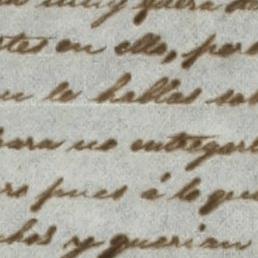 muy fuera
tes en ello, par
lo hallas sal
para no entregar
pues á lo que
chos y querian